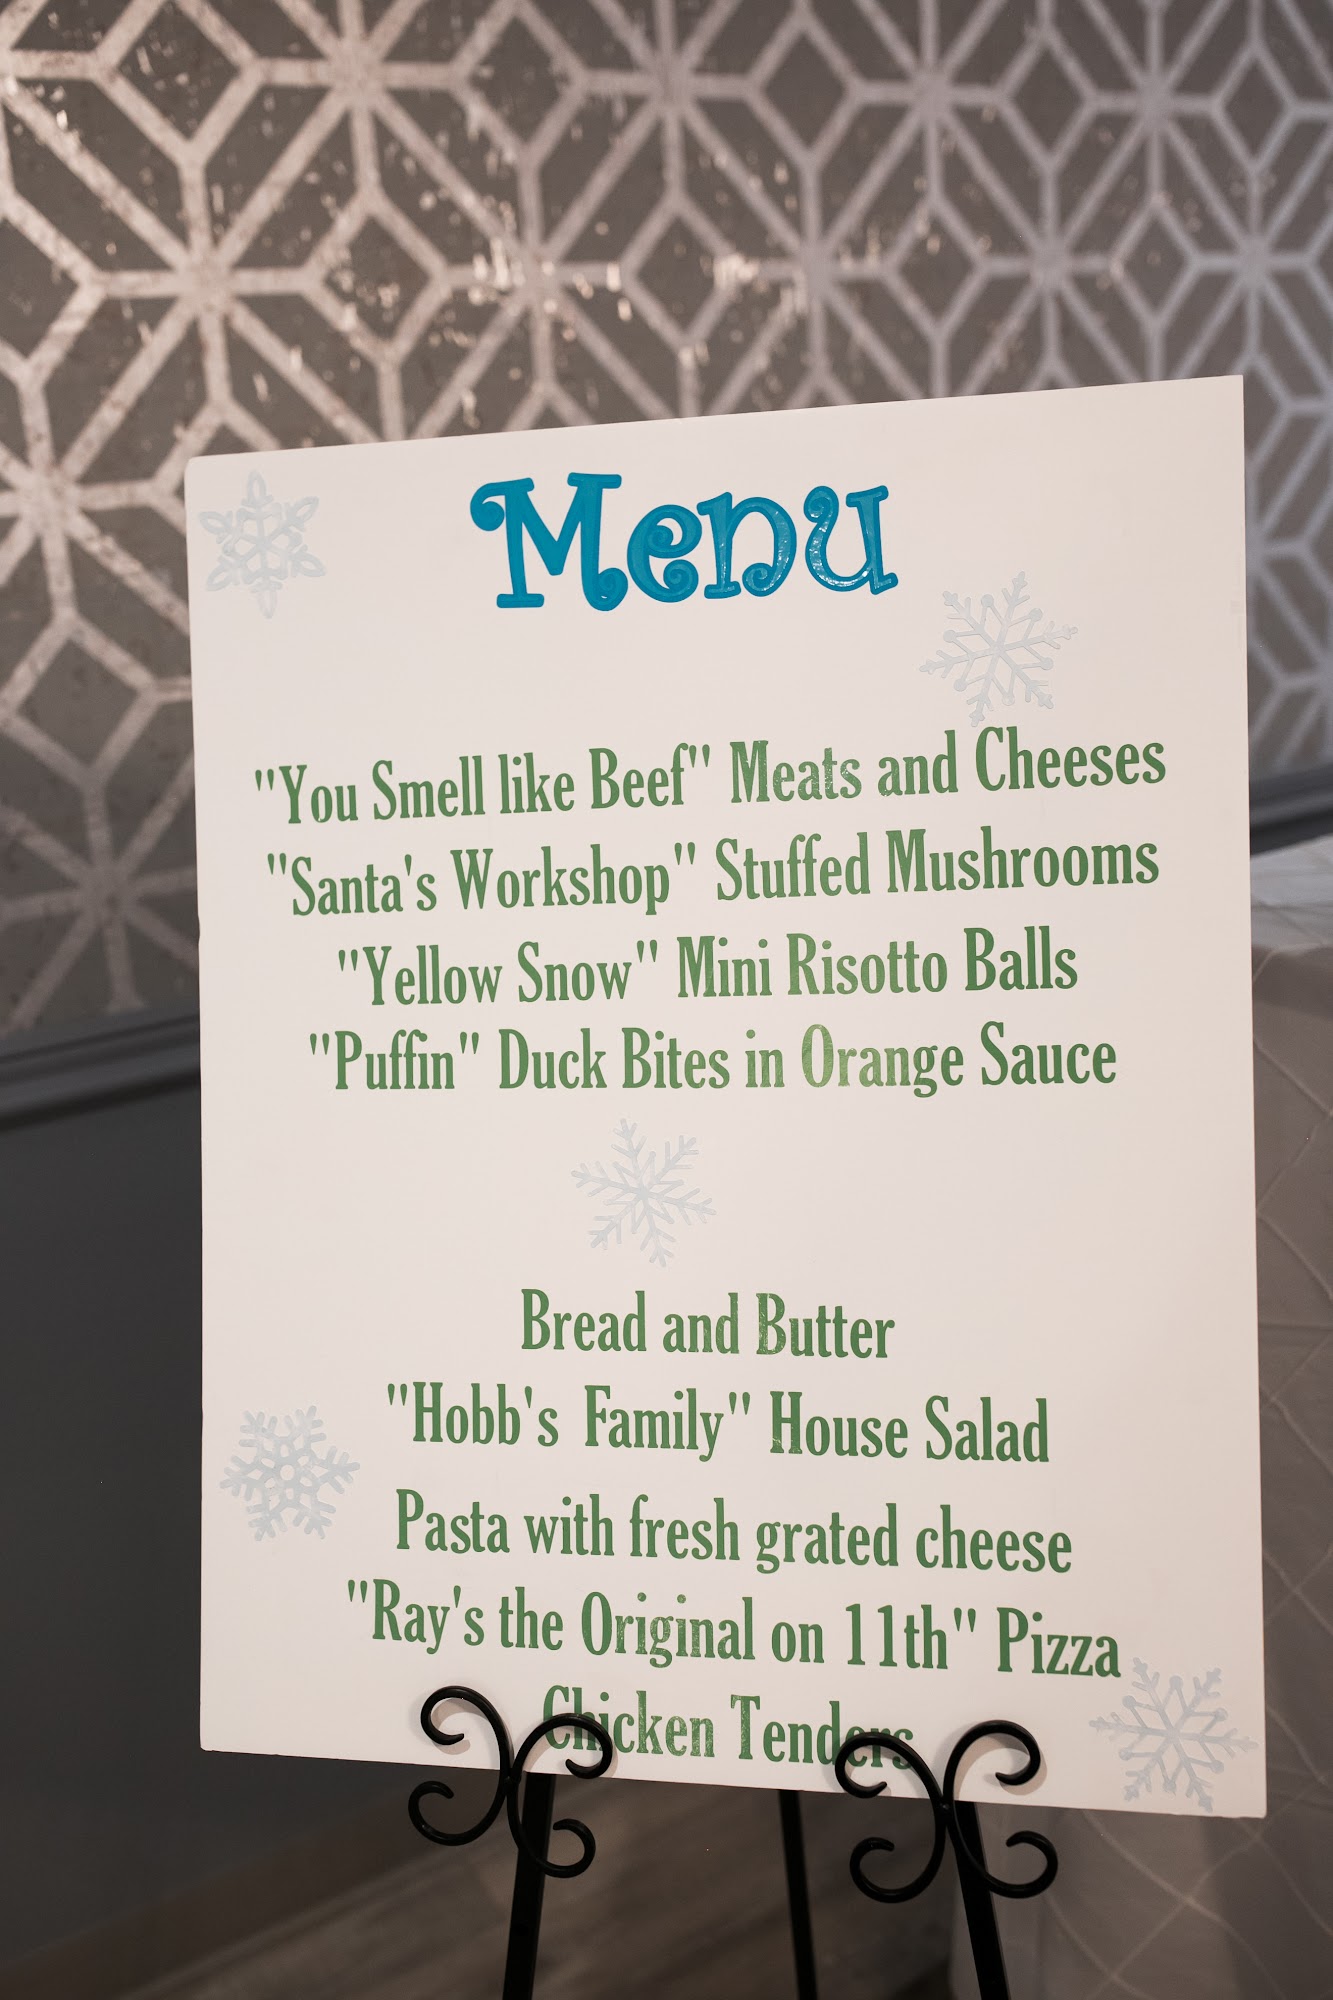 Menu
"You Smell like Beef" Meats and Cheeses
"Santa's Workshop" Stuffed Mushrooms
"Yellow Snow" Mini Risotto Balls
"Puffin" Duck Bites in Orange Sauce
Bread and Butter
"Hobb's Family" House Salad
Pasta with fresh grated cheese
"Ray's the Original on 11th" Pizza
Chicken Tenders